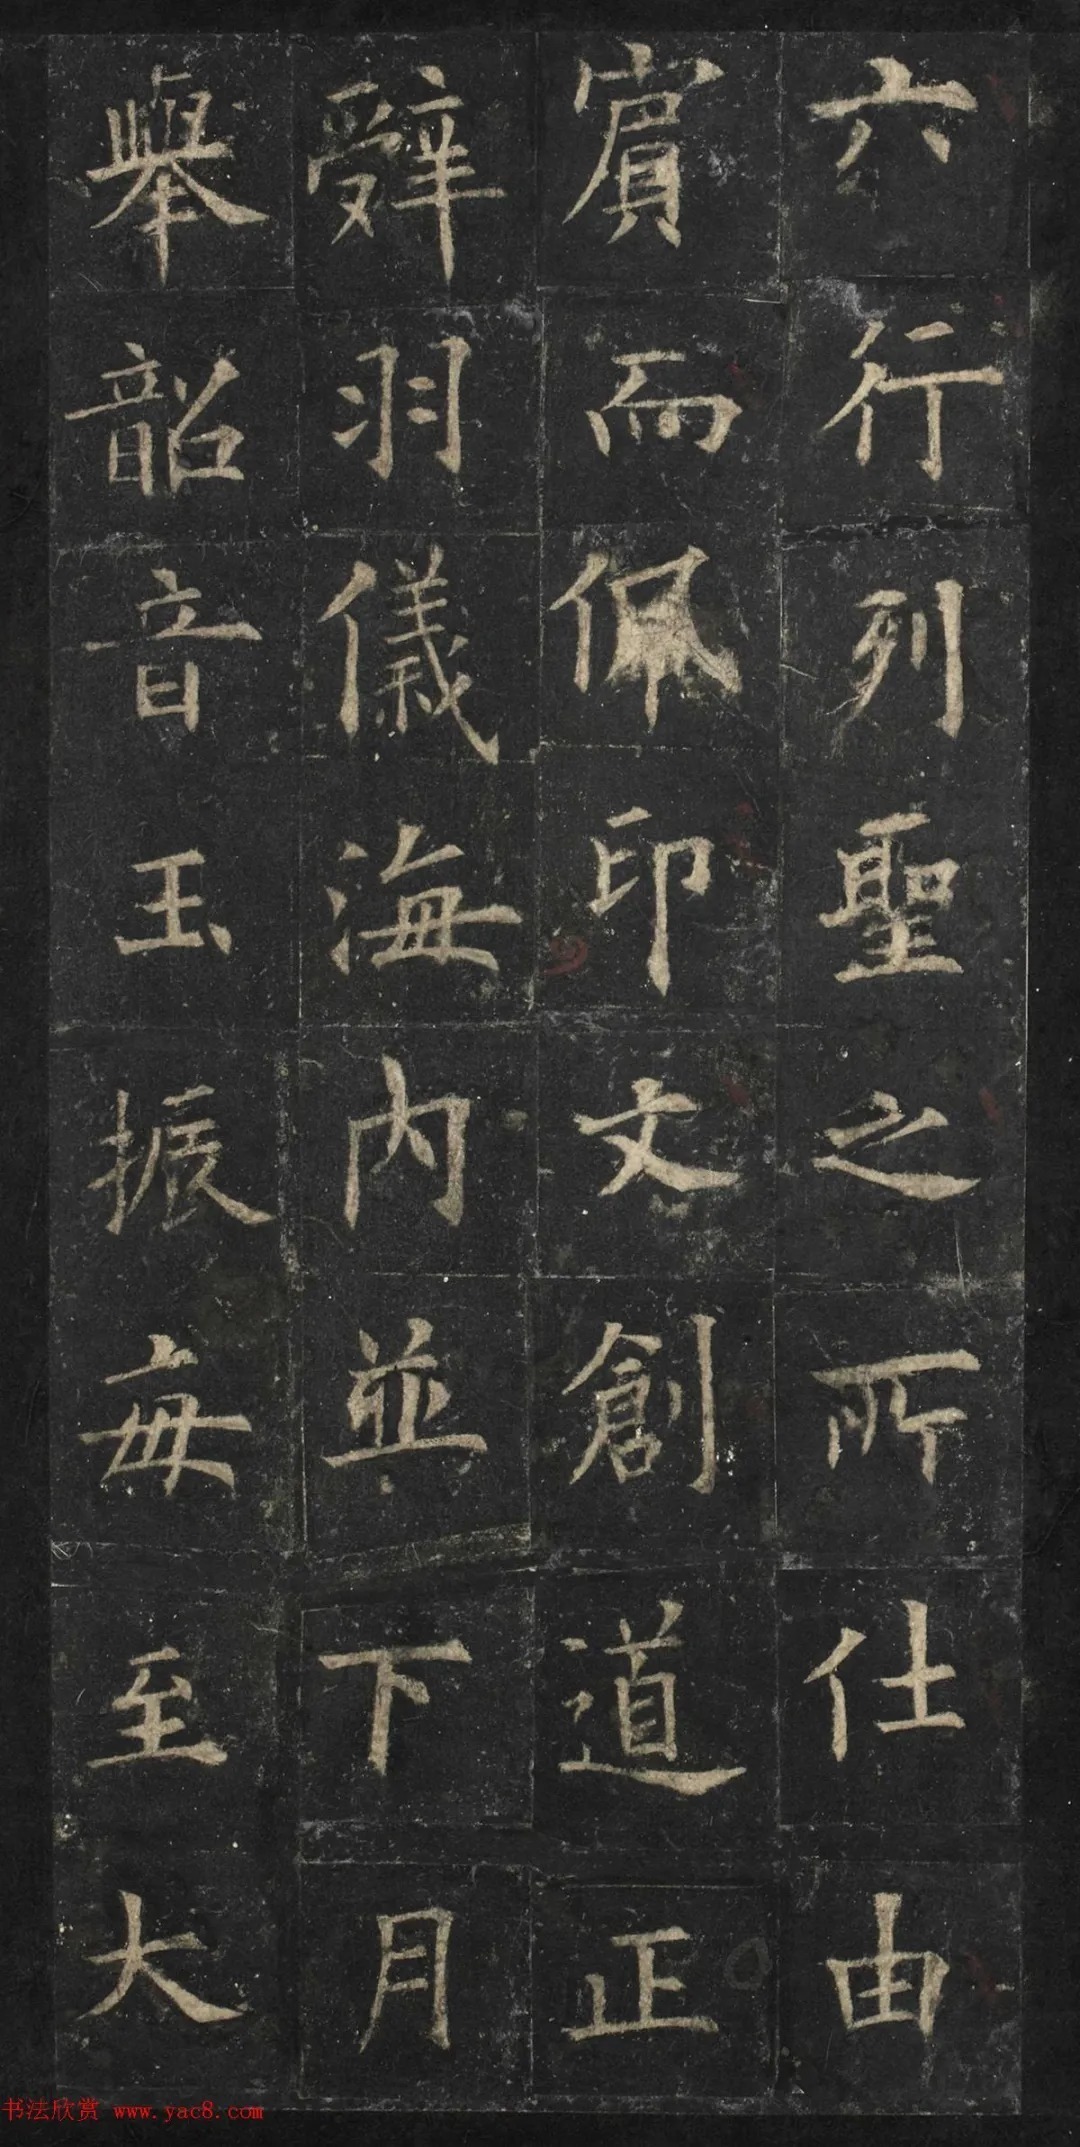 六行列聖之所仕由
賔而佩印文創道正
辤羽儀海內並下月
舉韶音玉振每至大
书法欣赏 www.yac8.com